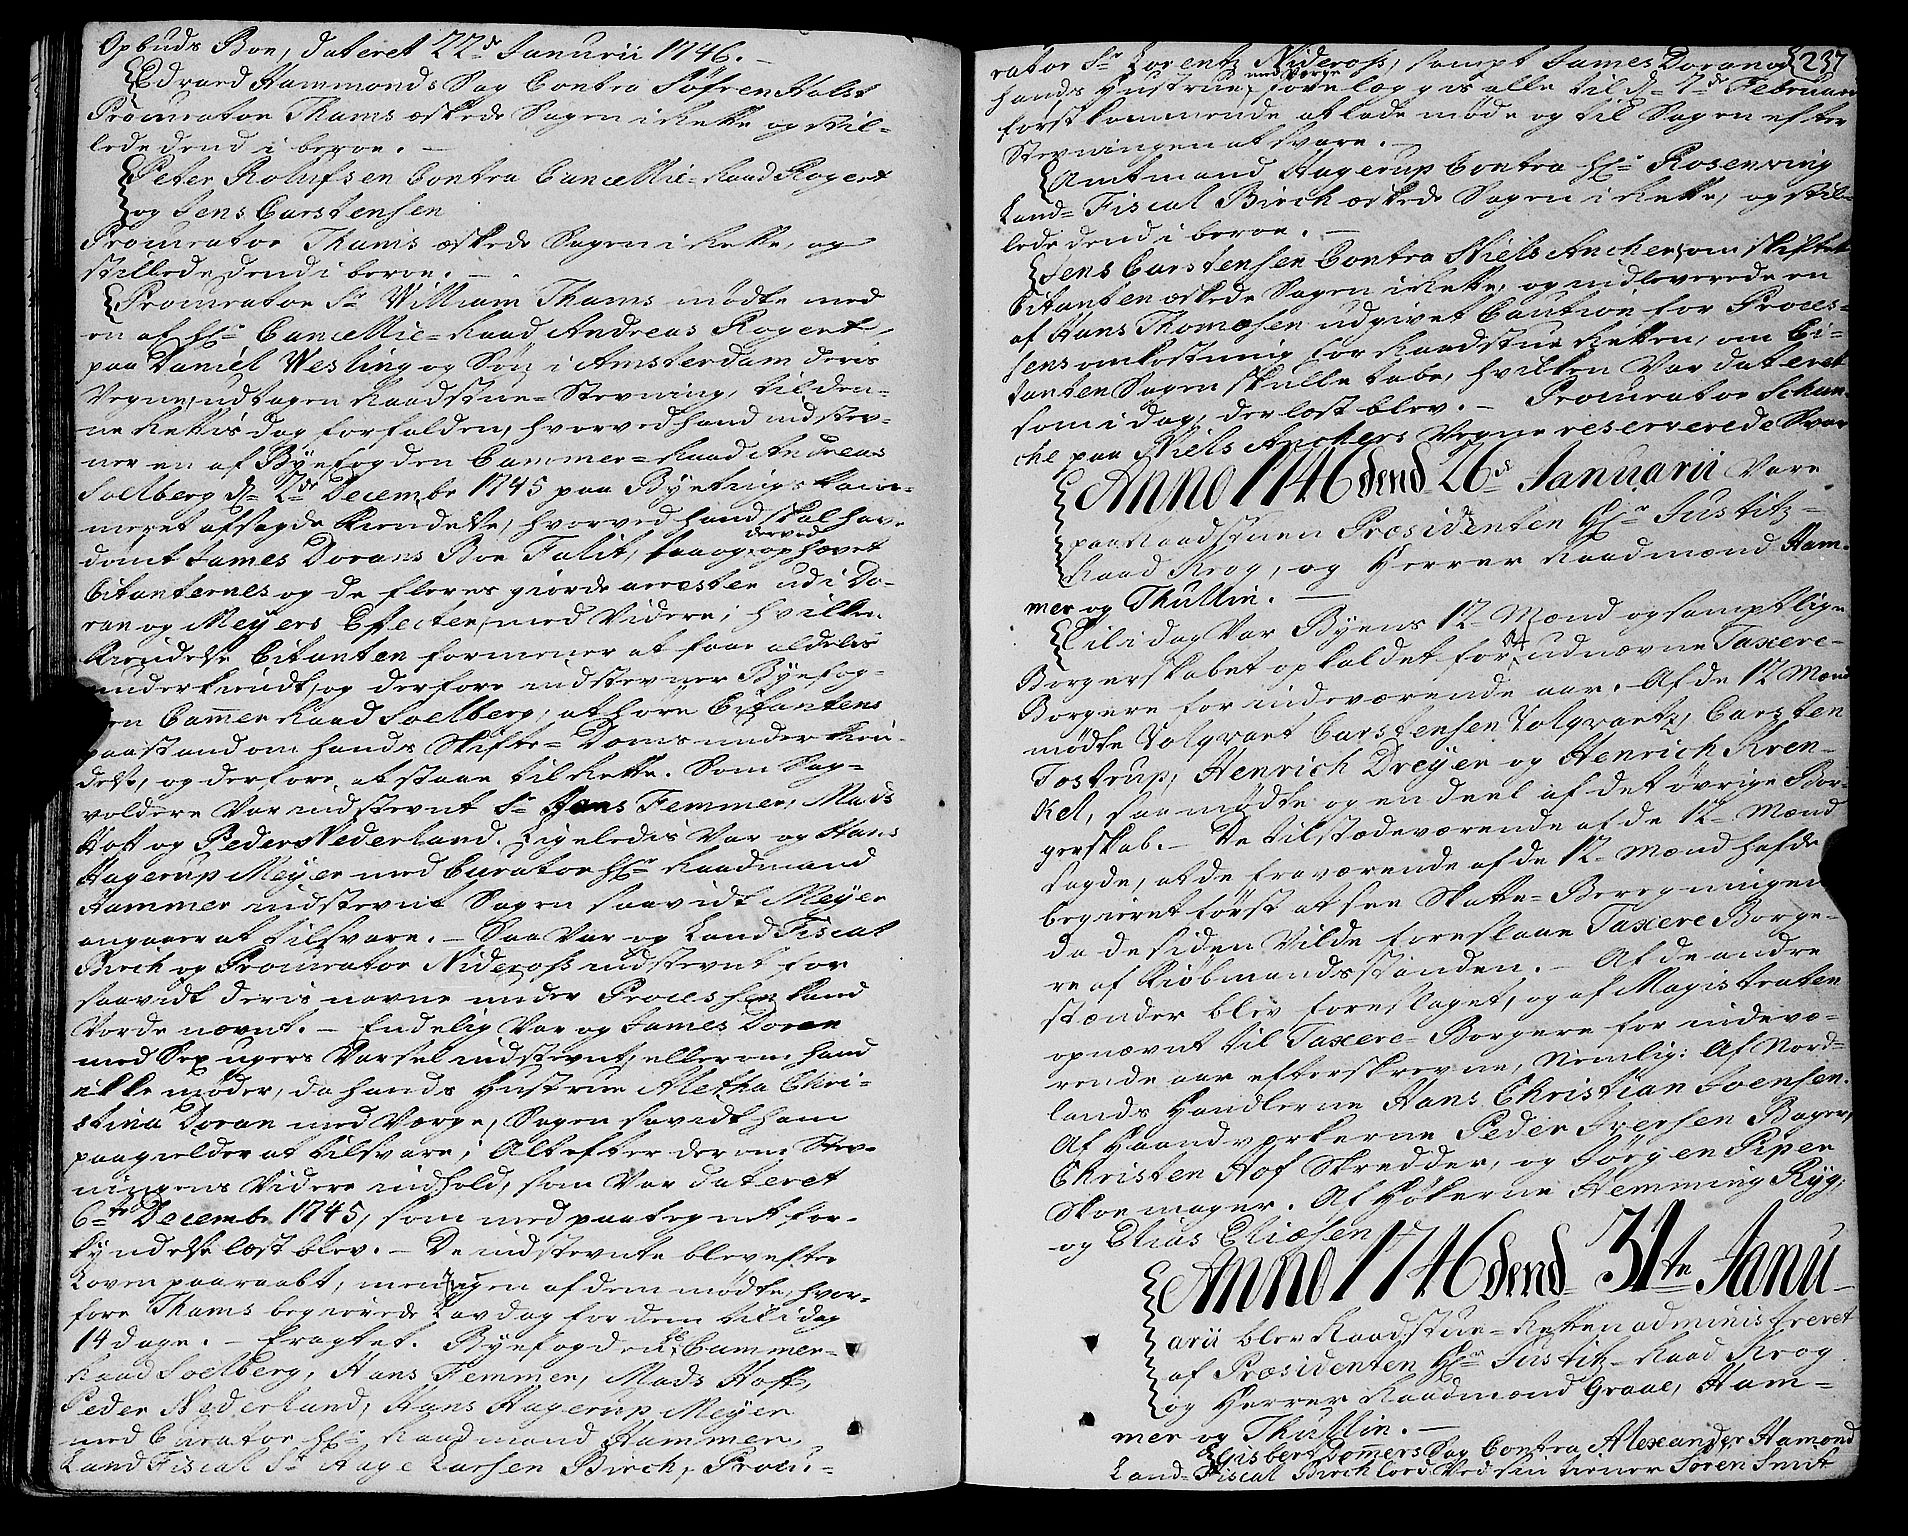 Opbuds Boe, dateret 22de Januarii 1746. –
Edvard Hammonds Sag Contra Söfren Holst
Procurator Thams æskede Sagen i Rette og stil-
lede dend i beroe. –
Peter Rolufsen Contra Cancellie-Raad Rogert
og Jens Carstensen
Procurator Thams æskede Sagen i Rette, og
stillede dend i beroe. –
Procurator Sr William Thams mødte med
en af Hr. Cancellie-Raad Andreas Rogert,
paa Daniel Wesling og Søn i Amsterdam deris
Vegne, udtagen Raadstue-Stevning, til den-
ne Rettis dag forfalden, hvorved hand indstev-
ner en af Byefogden Cammer-Raad Andreas
Soelberg d. 2de Decembr 1745 paa Byetings kam-
meret afsagde Kiendelse, hvorved hand skal have
dømt James Dorans Boe Falit, saa og derved ophævet
Citanternes og de fleres giorde arrester udi Do-
ran og Meyers Effecter, med Videre; hvilken
Kiendelse Citanten formener at faae aldelis
underkiendt, og derfore indstevner Byefog-
den Cammer Raad Soelberg, at høre Citantens
paastand om hands Skifte-Doms underkien-
delse, og derfore at staae til Rette. Som Sag-
voldere Var indstevnt Sr Jens Femmer, Mads
Hoff og Peder Nederland. Ligeledis Var og Hans
Hagerup Meyer med Curator Hr. Raadmand
Hammer indstevnt Sagen saavidt Meyer
angaaer at tilsvare. – Saa Var og Land Fiscal
Birch og Procurator Nideross indstevnt for
saavidt deris navne under Processen kand
Vorde nævnt. – Endelig Var og James Doran
med Sex ugers Varsel indstevnt, eller om hand
ikke møder, da hands Hustrue Aletha Chri-
stina Doran med Værge, Sagen saavidt ham
paagielder at tilsvare; Alt efter der om Stev-
ningens Videre indhold, som Var dateret
6te Decembr 1745, som med paategnet for-
kyndelse læst blev. – De indstevnte blev efter
Loven paaraabt, men ingen af dem mødte, hvor-
fore Thams begierede Lavdag for dem til i dag
14 dage. – Eragtet. Byefogden Cammer-
Raad Soelberg, Hans Femmer, Mads Hoff,
Peder Nederland, Hans Hagerup Meyer
med Curator Hr. Raadmand Hammer,
Land Fiscal Sr Aage Larsen Birch, Procu-
237
rator Sr Lorentz Nideross, sampt James Doran og
hands Hustrue med Værge forelægges alle til d. 7de Februarii
førstkommende at lade møde og til Sagen efter
Stevningen at svare. –
Amtmand Hagerup Contra Hr. Rosenving
Land-Fiscal Birch æskede Sagen i Rette, og stil-
lede dend i beroe. –
Jens Carstensen Contra Niels Ancher, om skiftet
Citanten æskede Sagen i Rette, og indleverede en
af Hans Thomæsen udgivet Caution for Proces-
sens omkostning for Raadstue Retten, om Ci-
tanten Sagen skulle tabe, hvilken Var dateret
som i dag, der læst blev. – Procurator Schan-
che paa Niels Anchers Vegne reserverede Svar
Anno 1746 dend 26de Januarii Vare
paa Raadstuen Præsidenten Hr. Justitz-
Raad Krog, og Herrer Raadmænd Ham-
mer og Thullin. –
Til i dag Var Byens 12 Mænd og samptlige
Borgerskabet opkaldet for at udnævne Taxere-
Borgere for indeværende aar. Af de 12 Mænd
mødte Volqvart Carstensen Volqvartz, Carsten
Tostrup, Henrich Dreyer og Henrich Kren-
kel, saa mødte og en deel af det øvrige Bor-
gerskab. – De tilstædeværende af de 12 Mænd
sagde, at de fraværende af de 12 Mænd hafde
begieret først at see Skatte-Beregningen
da de siden Vilde foreslaae Taxere Borge-
re af Kiøbmandsstanden. – Af de andre
stænder blev foreslaget, og af Magistraten
opnævnt til Taxere-Borgere for indevæ-
rende aar efterskrevne, Nemlig: Af Nord-
lands Handlerne Hans Christian Svensen.
Af Haandværkerne Peder Iversen Bager,
Christen Hof Skredder, og Jörgen Piper
Skoemager. Af Høkerne Hemming Ryg,
og Elias Eliæsen
Anno 1746 dend 31te Janu-
arii blev Raadstue-Retten administreret
af Præsidenten Hr. Justitz-Raad Krog
og Herrer Raadmænd Graae, Ham-
mer og Thullin. –
Gisbert Domers Sag Contra Alexander Hamond
Land-Fiscal Birch lod Ved sin tiener Søren Smit